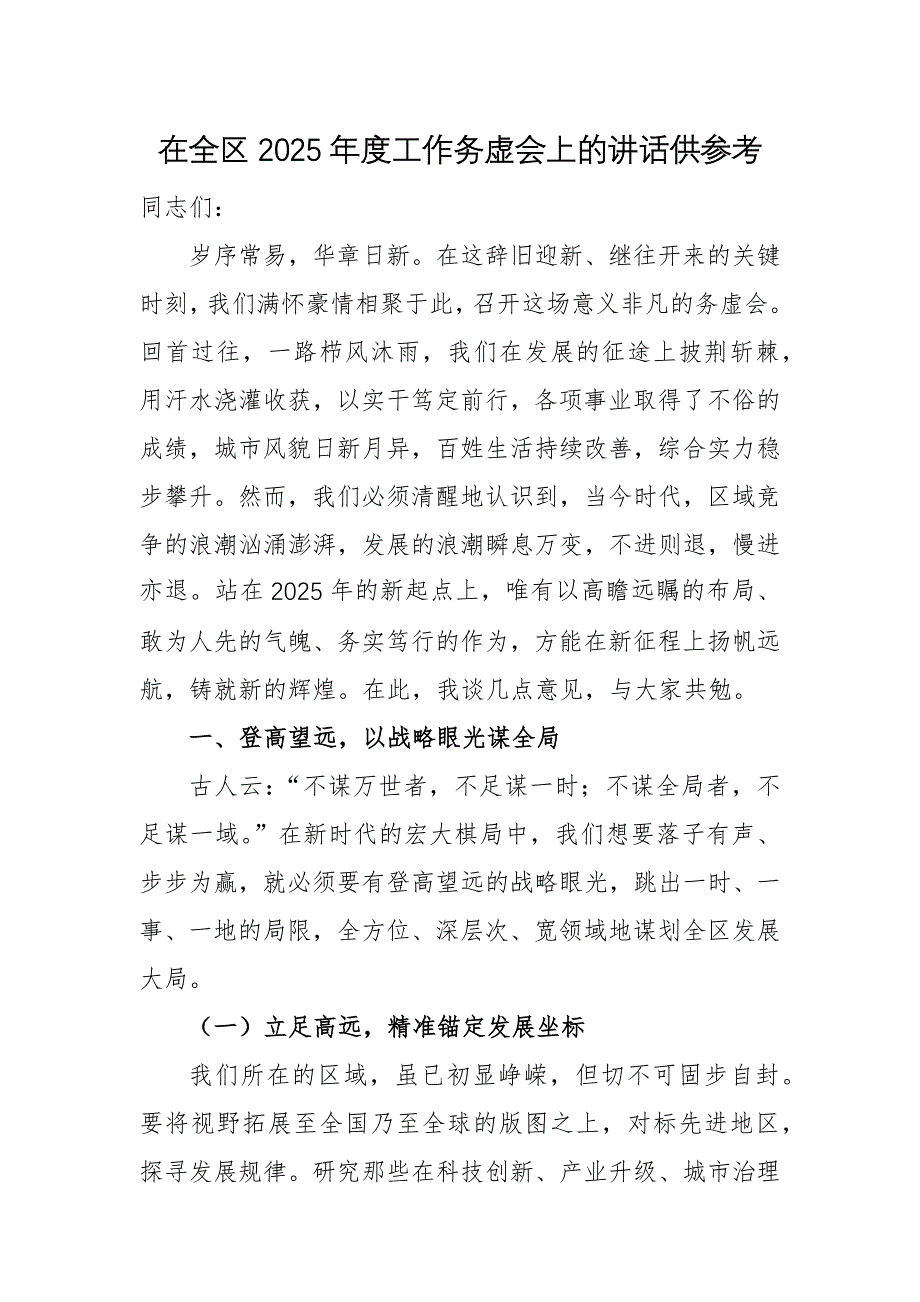 在全区 2025 年度工作务虚会上的讲话供参考
同志们：
岁序常易，华章日新。在这辞旧迎新、继往开来的关键
时刻，我们满怀豪情相聚于此，召开这场意义非凡的务虚会。
回首过往，一路栉风沐雨，我们在发展的征途上披荆斩棘，
用汗水浇灌收获，以实干笃定前行，各项事业取得了不俗的
成绩，城市风貌日新月异，百姓生活持续改善，综合实力稳
步攀升。然而，我们必须清醒地认识到，当今时代，区域竞
争的浪潮汹涌澎湃，发展的浪潮瞬息万变，不进则退，慢进
亦退。站在 2025 年的新起点上，唯有以高瞻远瞩的布局、
敢为人先的气魄、务实笃行的作为，方能在新征程上扬帆远
航，铸就新的辉煌。在此，我谈几点意见，与大家共勉。
一、登高望远，以战略眼光谋全局
古人云：“不谋万世者，不足谋一时；不谋全局者，不
足谋一域。”在新时代的宏大棋局中，我们想要落子有声、
步步为赢，就必须要有登高望远的战略眼光，跳出一时、一
事、一地的局限，全方位、深层次、宽领域地谋划全区发展
大局。
（一）立足高远，精准锚定发展坐标
我们所在的区域，虽已初显峥嵘，但切不可固步自封。
要将视野拓展至全国乃至全球的版图之上，对标先进地区，
探寻发展规律。研究那些在科技创新、产业升级、城市治理